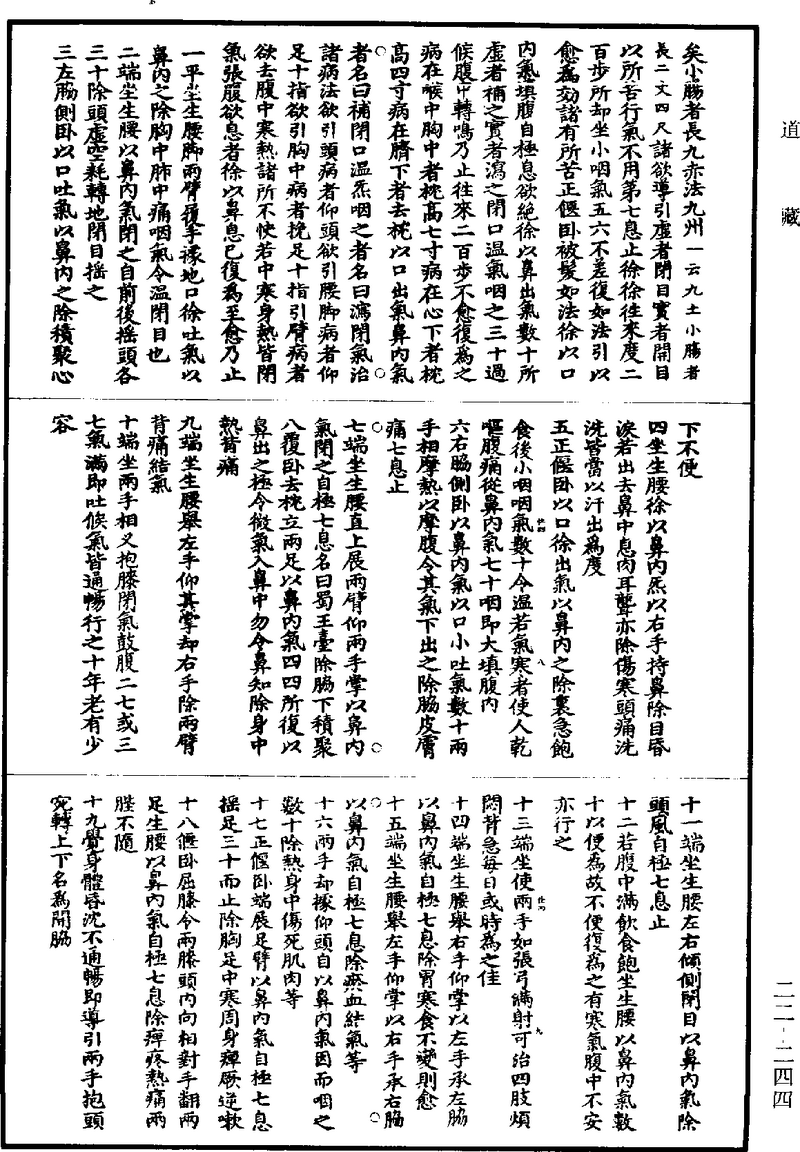 道藏
矣小腸者長九赤法九州一云九土小腸者
長二丈四尺諸欲導引虛者閉目實者開目
以所苦行氣不用第七息止徐徐往來度二
百步所却坐小咽氣五六不差復如法引以
愈為効諸有所苦正偃卧被髮如法徐以口
內氣填腹自極息欲絕徐以鼻出氣數十所
虛者補之實者瀉之閉口溫氣咽之三十過
候腹中轉鳴乃止往來二百步不愈復為之
病在喉中胸中者枕高七寸病在心下者枕
高四寸病在臍下者去枕以口出氣鼻內氣
者名曰補閉口溫炁咽之者名曰瀉閉氣治
諸病法欲引頭病者仰頭欲引腰脚病者仰
足十指欲引胸中病者挽足十指引臂病者
欲去腹中寒熱諸所不快若中寒身熱皆閉
氣張腹欲息者徐以鼻息已復為至愈乃止
一平坐生腰脚兩臂覆手據地口徐吐氣以
鼻內之除胸中肺中痛咽氣令溫閉目也
二端坐生腰以鼻內氣閉之自前後搖頭各
三十除頭虛空耗轉地閉目搖之
三左脇側卧以口吐氣以鼻內之除積聚心
下不便
四坐生腰徐以鼻內炁以右手持鼻除目昏
淚若出去鼻中息肉耳聾亦除傷寒頭痛洗
洗皆當以汗出為度
五正偃卧以口徐出氣以鼻內之除裏急飽
食後小咽咽氣數十令溫若氣寒者使人乾
嘔腹痛從鼻內氣七十咽即大填腹內
六右脇側卧以鼻內氣以口小吐氣數十兩
手相摩熱以摩腹令其氣下出之除脇皮膚
痛七息止
七端坐生腰直上展兩臂仰兩手掌以鼻內
氣閉之自極七息名曰蜀王臺除脇下積聚
八覆卧去枕立兩足以鼻內氣四四所復以
鼻出之極令微氣入鼻中勿令鼻知除身中
熱背痛
九端坐生腰舉左手仰其掌却右手除兩臂
背痛結氣
十端坐兩手相叉抱膝閉氣鼓腹二七或三
七氣滿即吐候氣皆通暢行之十年老有少
容
十一端坐生腰左右傾側閉目以鼻內氣除
頭風自極七息止
十二若腹中滿飲食飽坐生腰以鼻內氣數
十以便為故不便復為之有寒氣腹中不安
亦行之
十三端坐使兩手如張弓滿射可治四肢煩
悶背急每日或時為之佳
十四端坐生腰舉右手仰掌以左手承左脇
以鼻內氣自極七息除胃寒食不變則愈
十五端坐生腰舉左手仰掌以右手承右脇
以鼻內氣自極七息除瘀血結氣等
十六兩手却據仰頭自以鼻內氣因而咽之
數十除熱身中傷死肌肉等
十七正偃卧端展足臂以鼻內氣自極七息
搖足三十而止除胸足中寒周身痺厥逆嗽
十八偃卧屈膝令兩膝頭內向相對手翻兩
足生腰以鼻內氣自極七息除痺疼熱痛兩
脛不隨
十九覺身體昏沈不通暢即導引兩手抱頭
宛轉上下名為開脇
二二·二四四